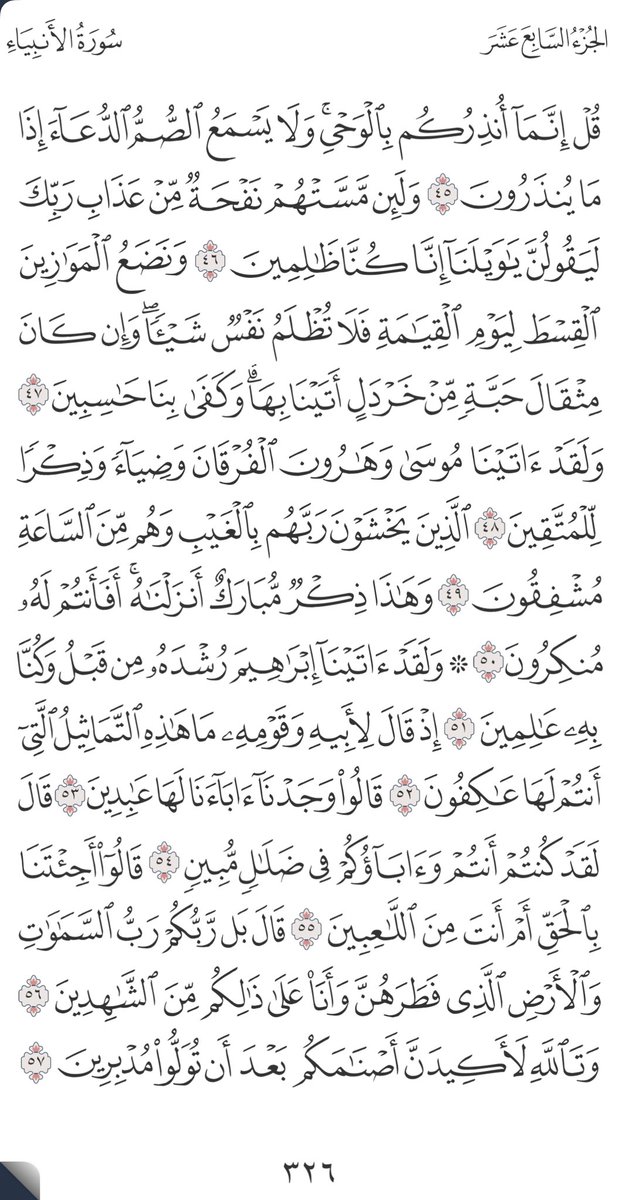 الجُزْءُ السَّابِعَ عَشَرَ
سُورَةُ الأَنبِيَاءِ
قُلۡ إِنَّمَآ أُنذِرُكُم بِٱلۡوَحۡيِۚ وَلَا يَسۡمَعُ ٱلصُّمُّ ٱلدُّعَآءَ إِذَا
مَا يُنذَرُونَ ٤٥ وَلَئِن مَّسَّتۡهُمۡ نَفۡحَةٞ مِّنۡ عَذَابِ رَبِّكَ
لَيَقُولُنَّ يَٰوَيۡلَنَآ إِنَّا كُنَّا ظَٰلِمِينَ ٤٦ وَنَضَعُ ٱلۡمَوَٰزِينَ
ٱلۡقِسۡطَ لِيَوۡمِ ٱلۡقِيَٰمَةِ فَلَا تُظۡلَمُ نَفۡسٞ شَيۡـٔٗاۖ وَإِن كَانَ
مِثۡقَالَ حَبَّةٖ مِّنۡ خَرۡدَلٍ أَتَيۡنَا بِهَاۗ وَكَفَىٰ بِنَا حَٰسِبِينَ ٤٧
وَلَقَدۡ ءَاتَيۡنَا مُوسَىٰ وَهَٰرُونَ ٱلۡفُرۡقَانَ وَضِيَآءٗ وَذِكۡرٗا
لِّلۡمُتَّقِينَ ٤٨ ٱلَّذِينَ يَخۡشَوۡنَ رَبَّهُم بِٱلۡغَيۡبِ وَهُم مِّنَ ٱلسَّاعَةِ
مُشۡفِقُونَ ٤٩ وَهَٰذَا ذِكۡرٞ مُّبَارَكٌ أَنزَلۡنَٰهُۚ أَفَأَنتُمۡ لَهُۥ
مُنكِرُونَ ٥٠ ۞ وَلَقَدۡ ءَاتَيۡنَآ إِبۡرَٰهِيمَ رُشۡدَهُۥ مِن قَبۡلُ وَكُنَّا
بِهِۦ عَٰلِمِينَ ٥١ إِذۡ قَالَ لِأَبِيهِ وَقَوۡمِهِۦ مَا هَٰذِهِ ٱلتَّمَاثِيلُ ٱلَّتِيٓ
أَنتُمۡ لَهَا عَٰكِفُونَ ٥٢ قَالُواْ وَجَدۡنَآ ءَابَآءَنَا لَهَا عَٰبِدِينَ ٥٣ قَالَ
لَقَدۡ كُنتُمۡ أَنتُمۡ وَءَابَآؤُكُمۡ فِي ضَلَٰلٖ مُّبِينٖ ٥٤ قَالُوٓاْ أَجِئۡتَنَا
بِٱلۡحَقِّ أَمۡ أَنتَ مِنَ ٱللَّٰعِبِينَ ٥٥ قَالَ بَل رَّبُّكُمۡ رَبُّ ٱلسَّمَٰوَٰتِ
وَٱلۡأَرۡضِ ٱلَّذِي فَطَرَهُنَّ وَأَنَا۠ عَلَىٰ ذَٰلِكُم مِّنَ ٱلشَّٰهِدِينَ ٥٦
وَتَٱللَّهِ لَأَكِيدَنَّ أَصۡنَٰمَكُم بَعۡدَ أَن تُوَلُّواْ مُدۡبِرِينَ ٥٧
٣٢٦